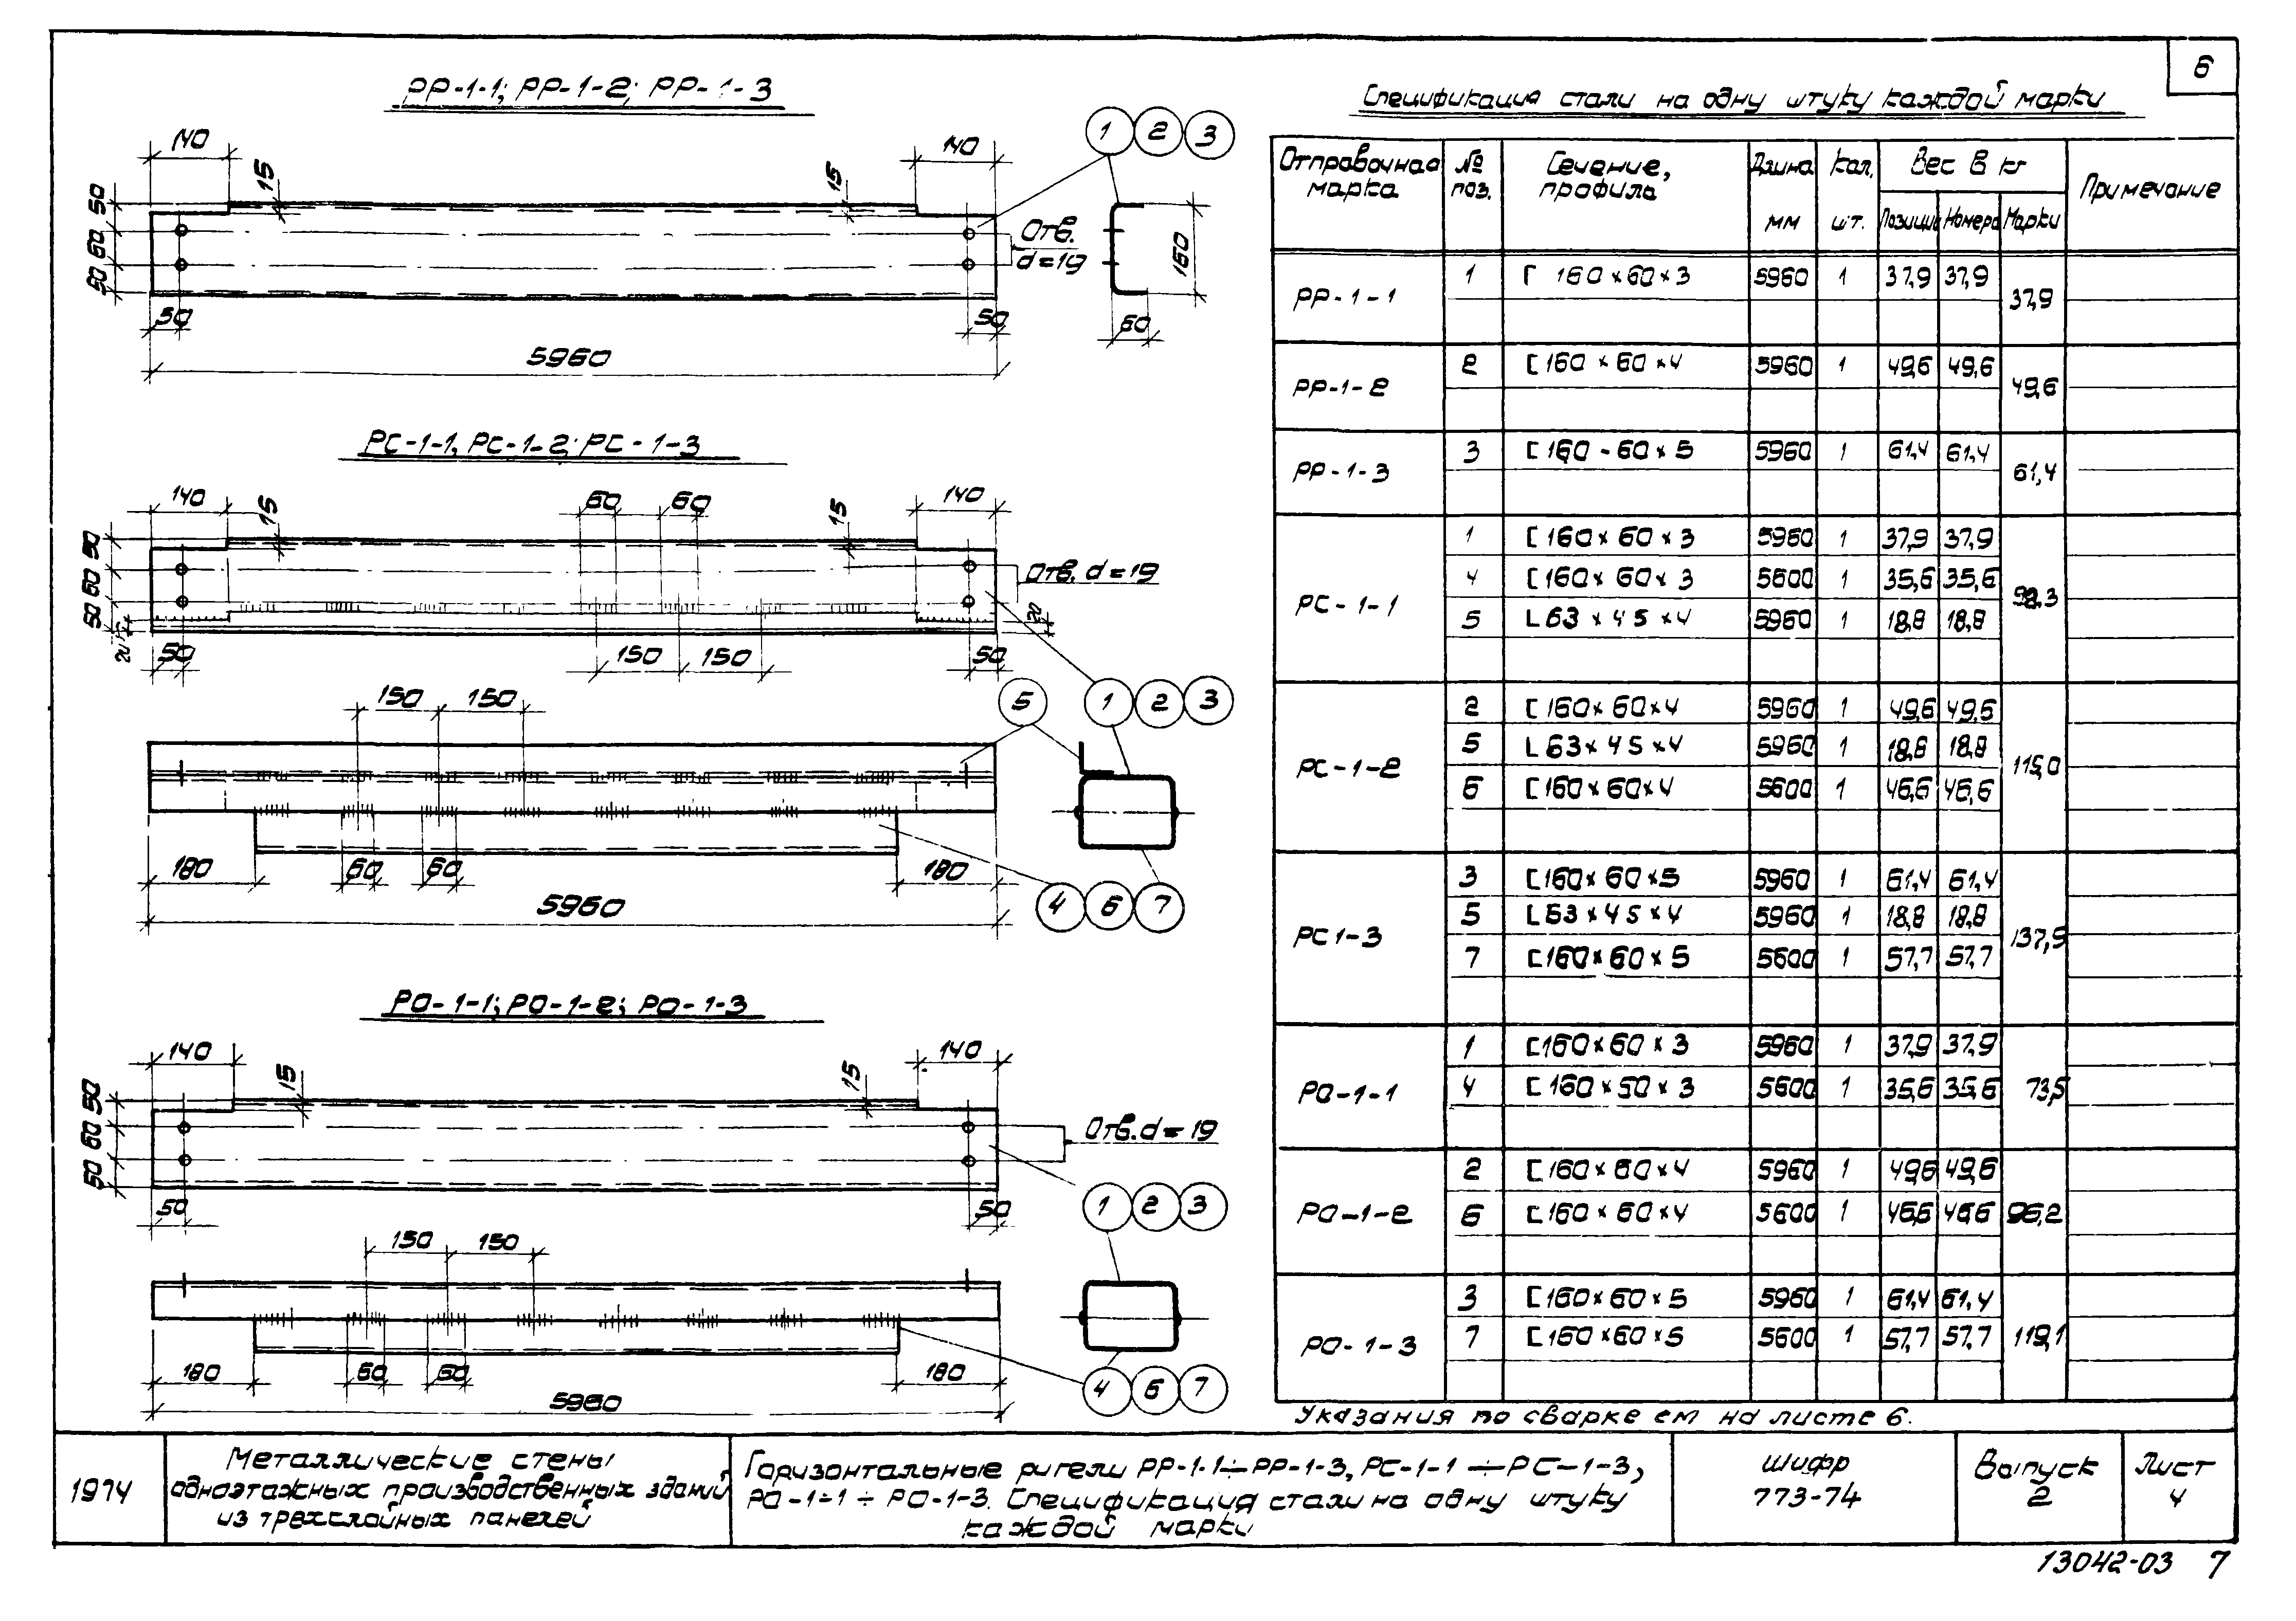 6
РР-1-1; РР-1-2; РР-1-3
140 140
15 15
50 60 50
Отв.
d=19
50 50
5960
1 2 3
160
60
РС-1-1, РС-1-2; РС-1-3
140 60 60 140
15 15
50 60 50
Отв. d=19
20
50 150 150 50
1 2 3
5
150 150
180 60 60 180
5960
4 6 7
РО-1-1; РО-1-2; РО-1-3
140 140
15 15
50 60 50
Отв. d=19
50 50
1 2 3
150 150
180 60 60 180
5960
4 6 7
Спецификация стали на одну штуку каждой марки
Отправочная марка № поз. Сечение, профиль Длина мм Кол. шт. Вес в кг Примечание
Позиции Номера Марки
РР-1-1 1 [ 160×60×3 5960 1 37,9 37,9 37,9
РР-1-2 2 [ 160×60×4 5960 1 49,6 49,6 49,6
РР-1-3 3 [ 160-60×5 5960 1 61,4 61,4 61,4
РС-1-1 1 [ 160×60×3 5960 1 37,9 37,9
4 [ 160×60×3 5600 1 35,6 35,6
5 L 63×45×4 5960 1 18,8 18,8
РС-1-2 2 [ 160×60×4 5960 1 49,6 49,6 115,0
5 L 63×45×4 5960 1 18,8 18,8
6 [ 160×60×4 5600 1 46,6 46,6
РС1-3 3 [ 160×60×5 5960 1 61,4 61,4 137,9
5 L 63×45×4 5960 1 18,8 18,8
7 [ 160×60×5 5600 1 57,7 57,7
РО-1-1 1 [ 160×60×3 5960 1 37,9 37,9 73,5
4 [ 160×50×3 5600 1 35,6 35,6
РО-1-2 2 [ 160×60×4 5960 1 49,6 49,6 96,2
6 [ 160×60×4 5600 1 46,6 46,6
РО-1-3 3 [ 160×60×5 5960 1 61,4 61,4 119,1
7 [ 160×60×5 5600 1 57,7 57,7
Указания по сварке см на листе 6.
1974
Металлические стены
одноэтажных производственных зданий
из трехслойных панелей
Горизонтальные ригели РР-1-1÷РР-1-3, РС-1-1÷РС-1-3,
РО-1-1÷РО-1-3. Спецификация стали на одну штуку
каждой марки
Шифр
773-74
Выпуск
2
Лист
4
13042-03 7